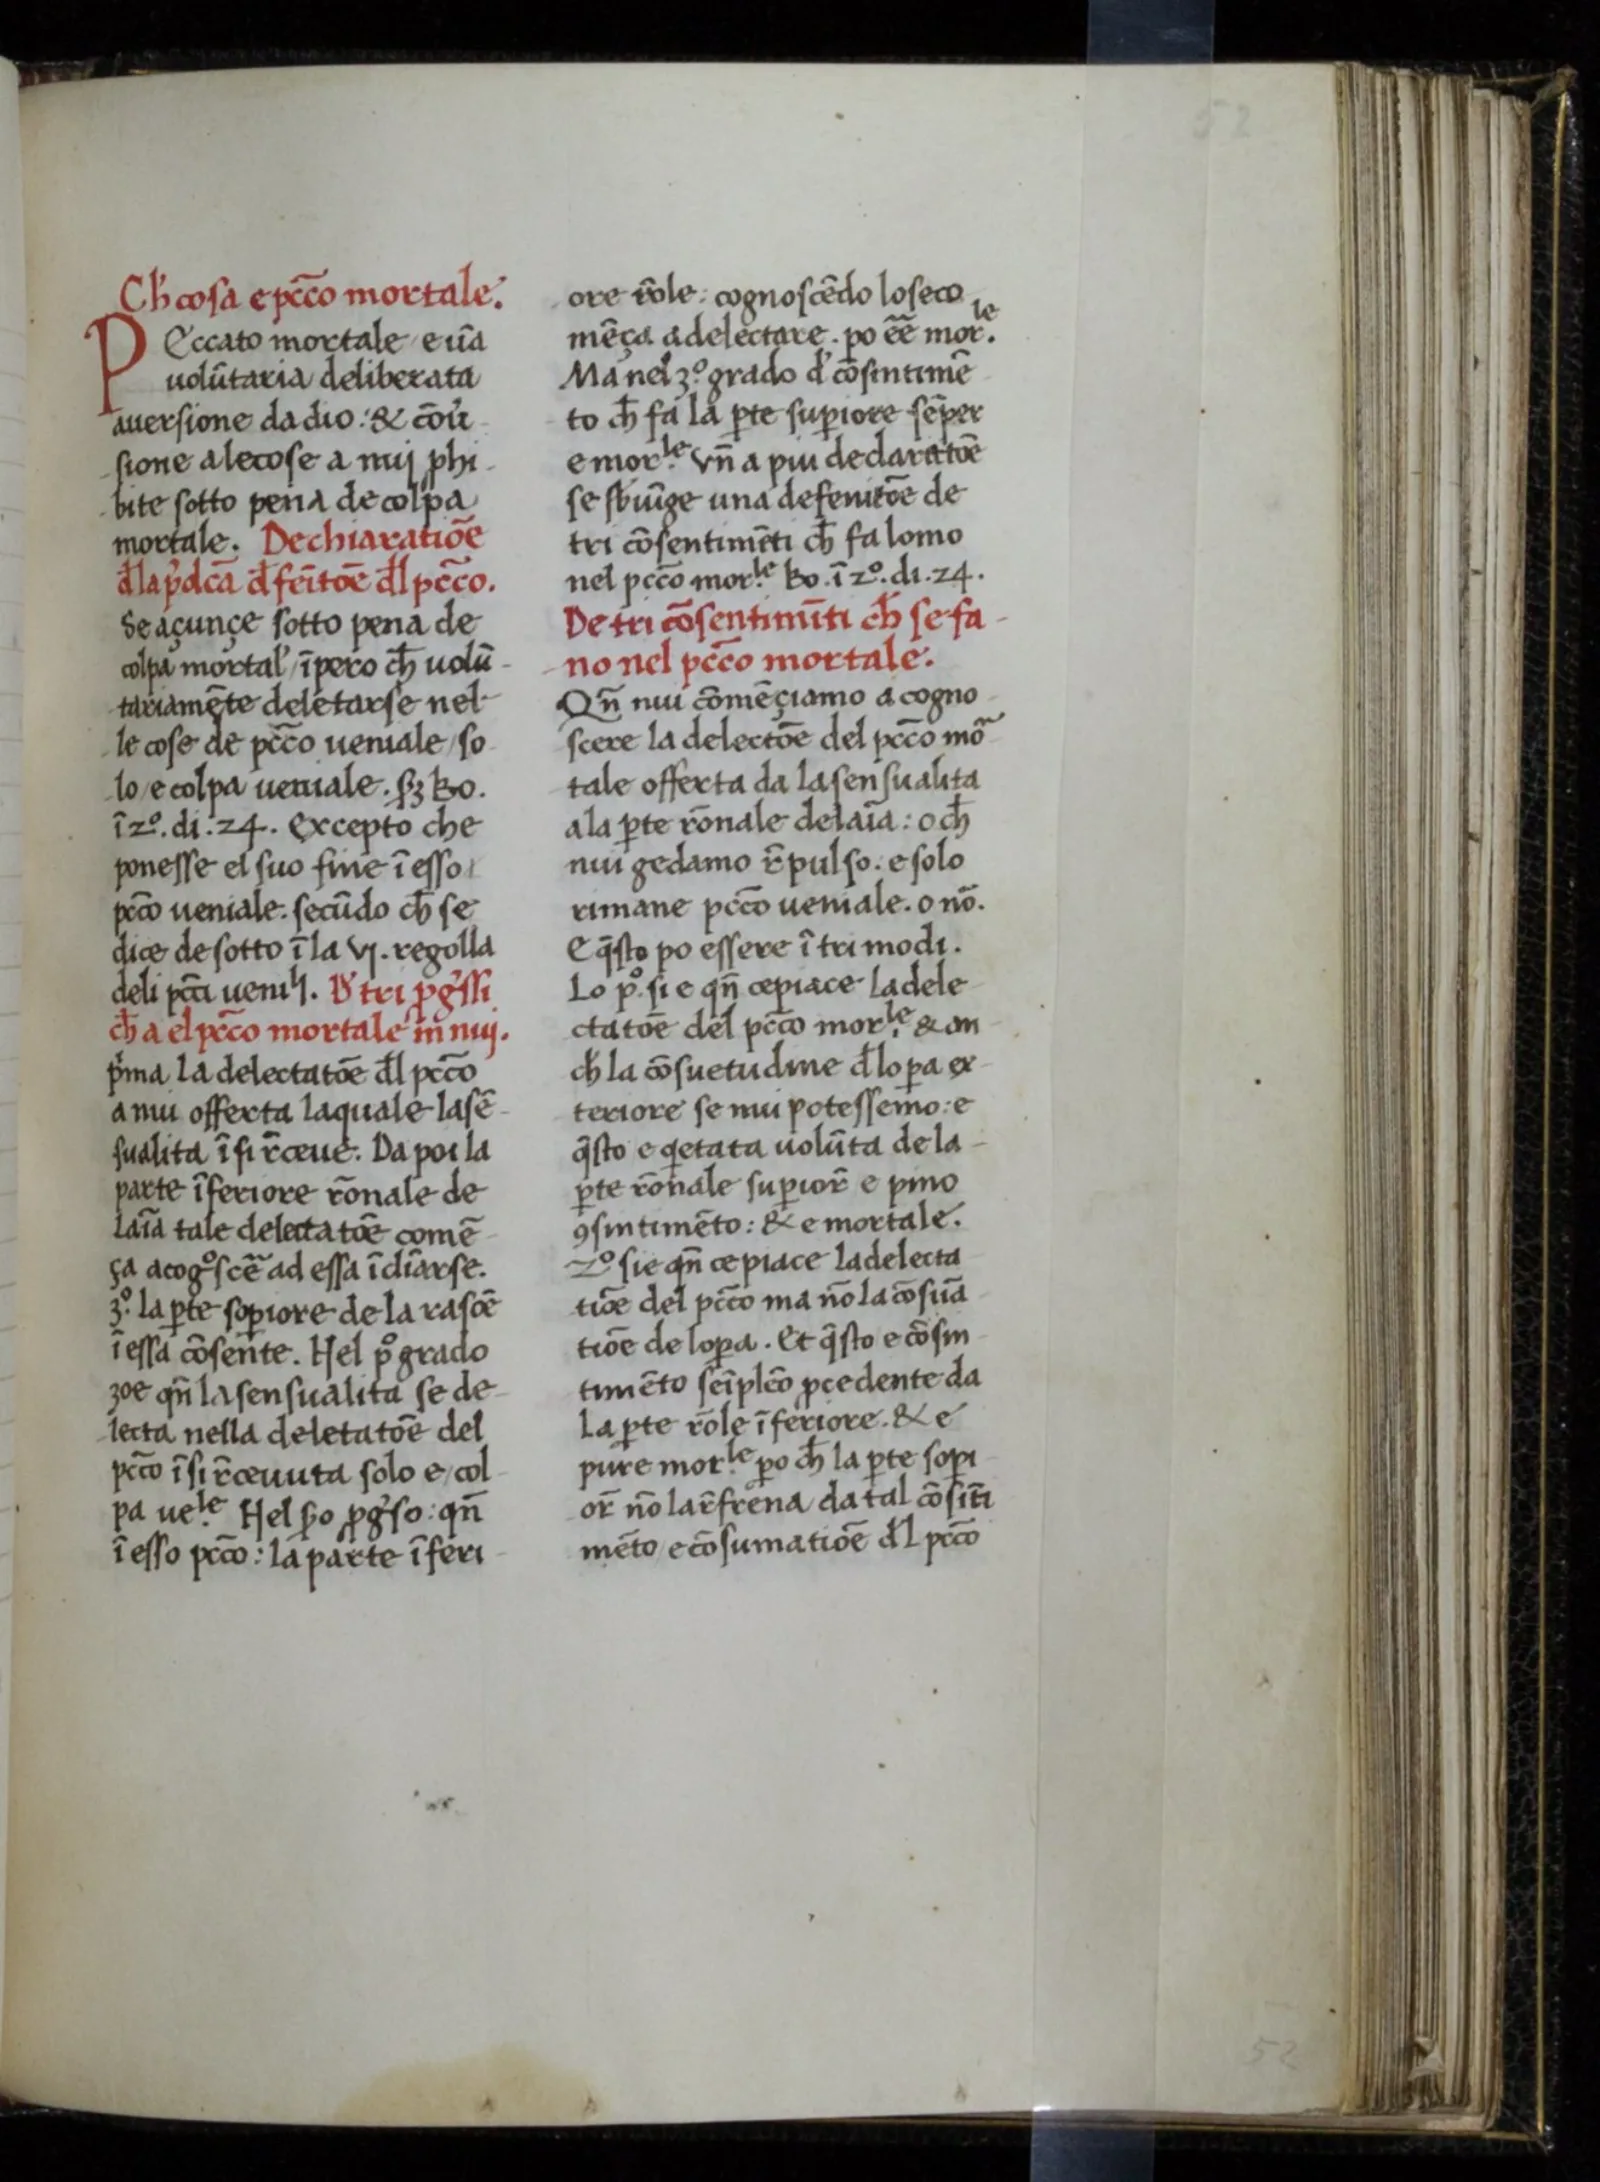 52
Ch̄ cosa e pc̄co mortale.
Peccato mortale / e ūa
uolūtaria deliberata
auersione da dio: & cōu̓
sione a le cose a nuj ꝓhi
bite sotto pena de colpa
mortale. Dechiaratiōe
đla p̓dc̄a đfeītōe đl pc̄co.
Se açunçe sotto pena de
colpa mortal̓ / īpero ch̄ uolū
tariamēte deletarse nel
le cose de pc̄co ueniale / so
lo / e colpa ueniale. s̄ꝫ Bo.
ī 2º. di. 24. Excepto che
ponesse el suo fine ī esso
pc̄co ueniale. secūdo ch̄ se
dice de sotto ī la vj. regolla
deli pc̄ci ueniˡⁱ. D̓ tri ꝓg̓ssi
ch̄ a el pc̄co mortale in nuj.
p̓ma la delectatōe đl pc̄co
a nui offerta la quale la sē
sualita ī si r̄ceue. Da poi la
parte īferiore rōnale de
laīa tale delectatōe comē
ça a cogºscē ad essa īcliārse.
3º. la ꝑte soꝑiore de la rasōe
ī essa cōsente. Nel pº grado
çoe qn̄ la sensualita se de
lecta nella deletatōe del
pc̄co ī si r̄ceuuta solo e / col
pa ueˡᵉ. Nel s̄o ꝓg̓so: qn̄
ī esso pc̄co: la parte īferi
ore rōle: cognoscēdo lo seco
mēça a delectare. po ēe morˡᵉ.
Ma nel 3º. grado d̓ cōsintimē
to ch̄ fa la ꝑte suꝑiore sēper
e morˡᵉ. Vn̄ a piu declaratōe
se sb̓iūge una defenitōe de
tri cōsentimēti ch̄ fa lomo
nel pc̄co morˡᵉ. Bo. ī 2º. di. 24.
De tri cōsentimīti ch̄ se fa
no nel pc̄co mortale.
Qn̄ nui cōmēçiamo a cogno
scere la delectōe del pc̄co mō
tale offerta da la sensualita
a la ꝑte rōnale delaīa: o ch̄
nui gedamo r̄pulso: e solo
rimane pc̄co ueniale. o nō.
E q̄sto po essere ī tri modi.
Lo pº. si e qn̄ ce piace la dele
ctatōe del pc̄co morˡᵉ. & an
ch̄ la cōsuetudine đ loꝑa ex
teriore se nui potessemo: e
q̄sto e q̄etata uolūta de la
ꝑte rōnale suꝑior̄ e pino
ꝯsintimēto: & e mortale.
2º si e qn̄ ce piace la delecta
tiōe del pc̄co ma nō la cōsūa
tiōe de loꝑa. Et q̄sto e cōsin
timēto sēīplēo ꝓcedente da
La ꝑte rōle īferiore. & e
pure morˡᵉ ꝑo ch̄ la ꝑte soꝑi
or̄ nō la r̄frena da tal cōsīti
mēto / e cōsumatiōe d̓l pc̄co
52